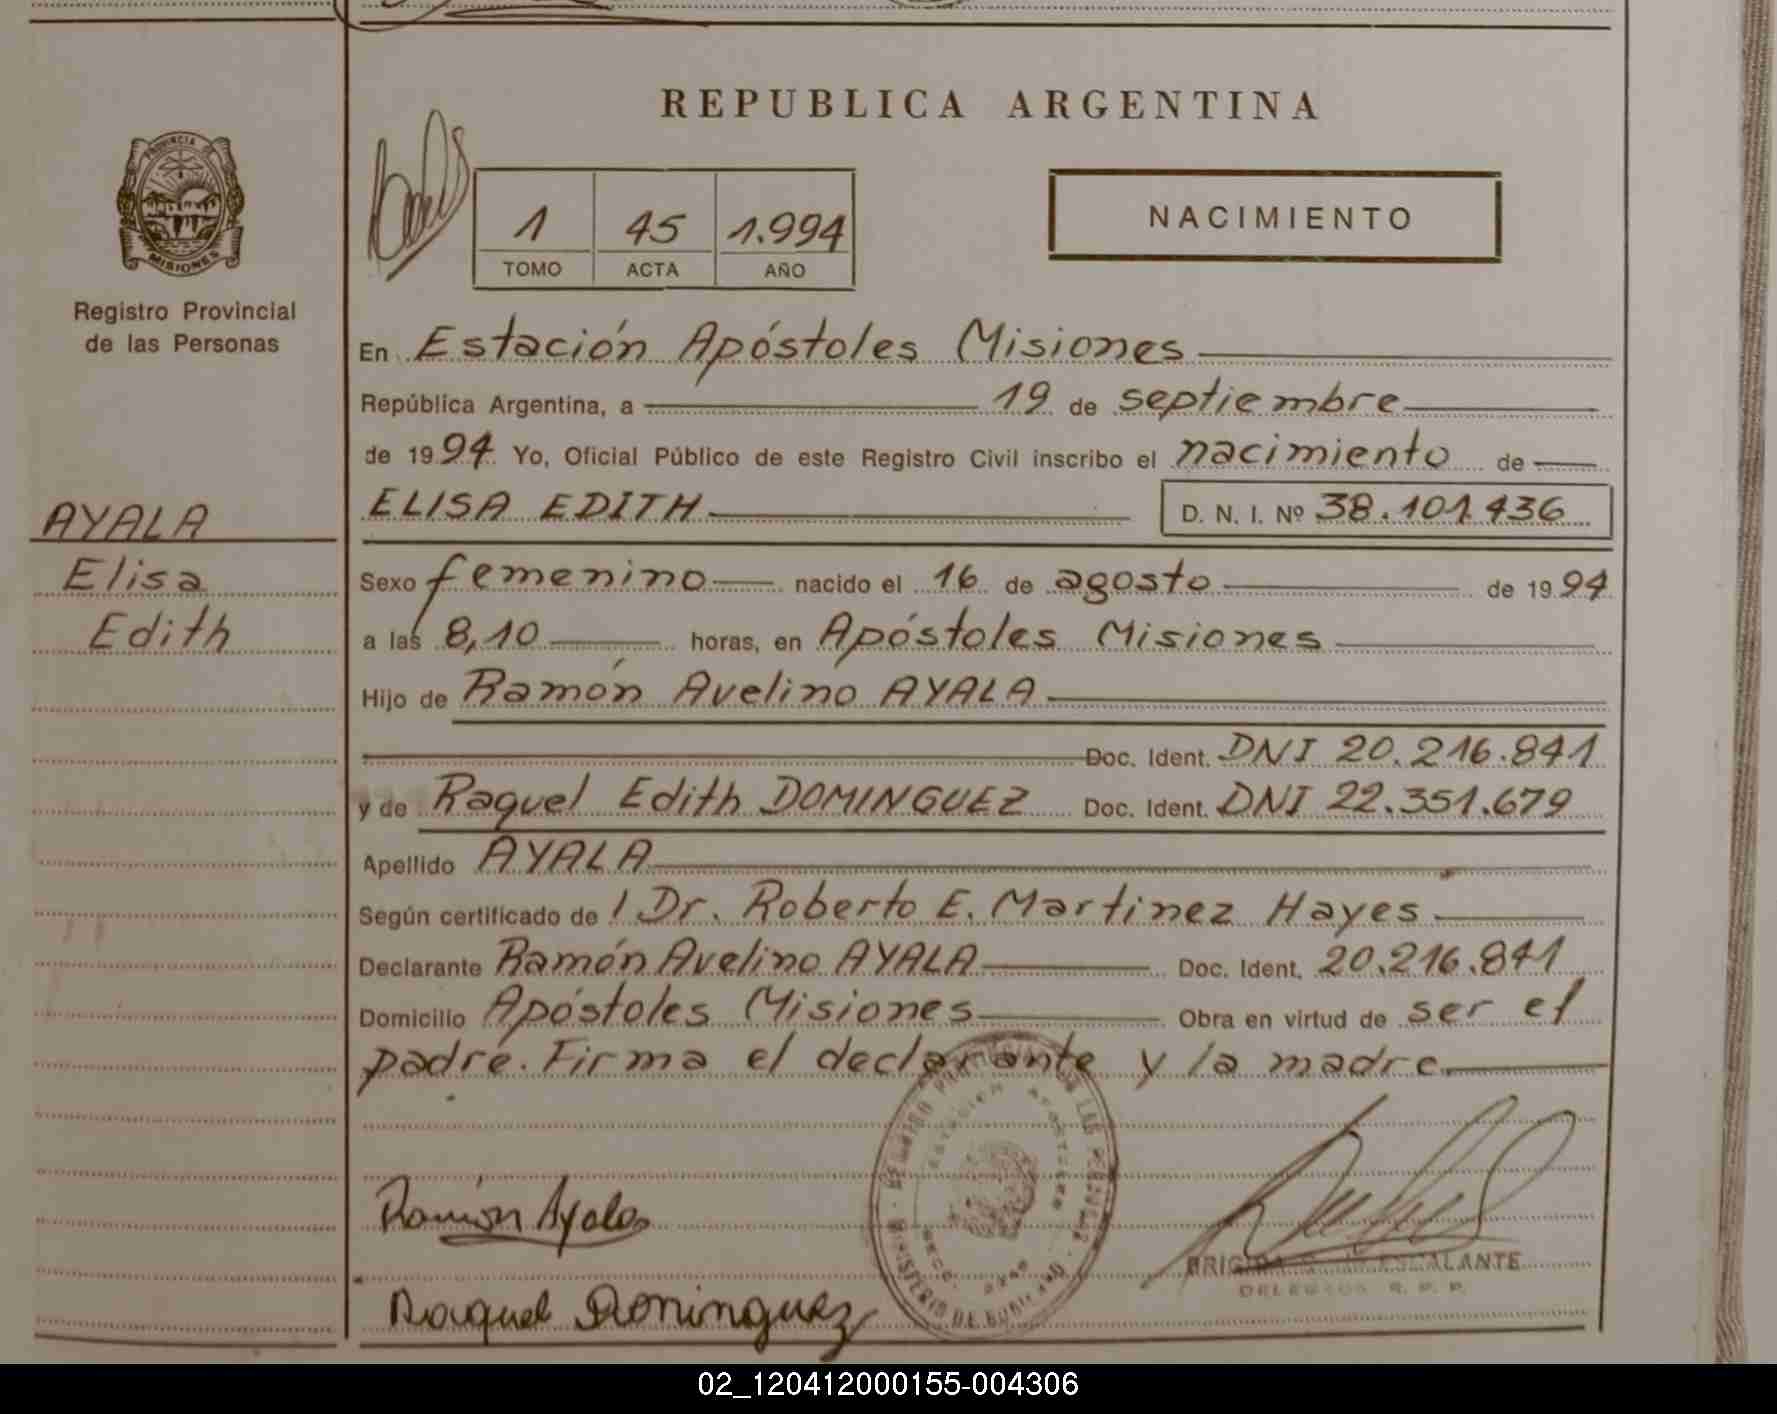 REPUBLICA ARGENTINA
PROVINCIA DE
MISIONES
Registro Provincial
de las Personas
1 45 1.994
TOMO ACTA AÑO
NACIMIENTO
En Estación Apóstoles Misiones
República Argentina, a 19 de septiembre
de 1994 Yo, Oficial Público de este Registro Civil inscribo el nacimiento de
AYALA
Elisa
Edith
ELISA EDITH D. N. I. Nº 38.101.436
Sexo femenino nacido el 16 de agosto de 1994
a las 8,10 horas, en Apóstoles Misiones
Hijo de Ramón Avelino AYALA
Doc. Ident. DNI 20.216.841
y de Raquel Edith DOMINGUEZ Doc. Ident. DNI 22.351.679
Apellido AYALA
Según certificado de l Dr. Roberto E. Martinez Hayes
Declarante Ramón Avelino AYALA Doc. Ident. 20.216.841
Domicilio Apóstoles Misiones Obra en virtud de ser el
padre. Firma el declarante y la madre.
Ramón Ayala
Raquel Dominguez
MINISTERIO DE GOBIERNO
ESCALANTE
R. P. P.
02_120412000155-004306